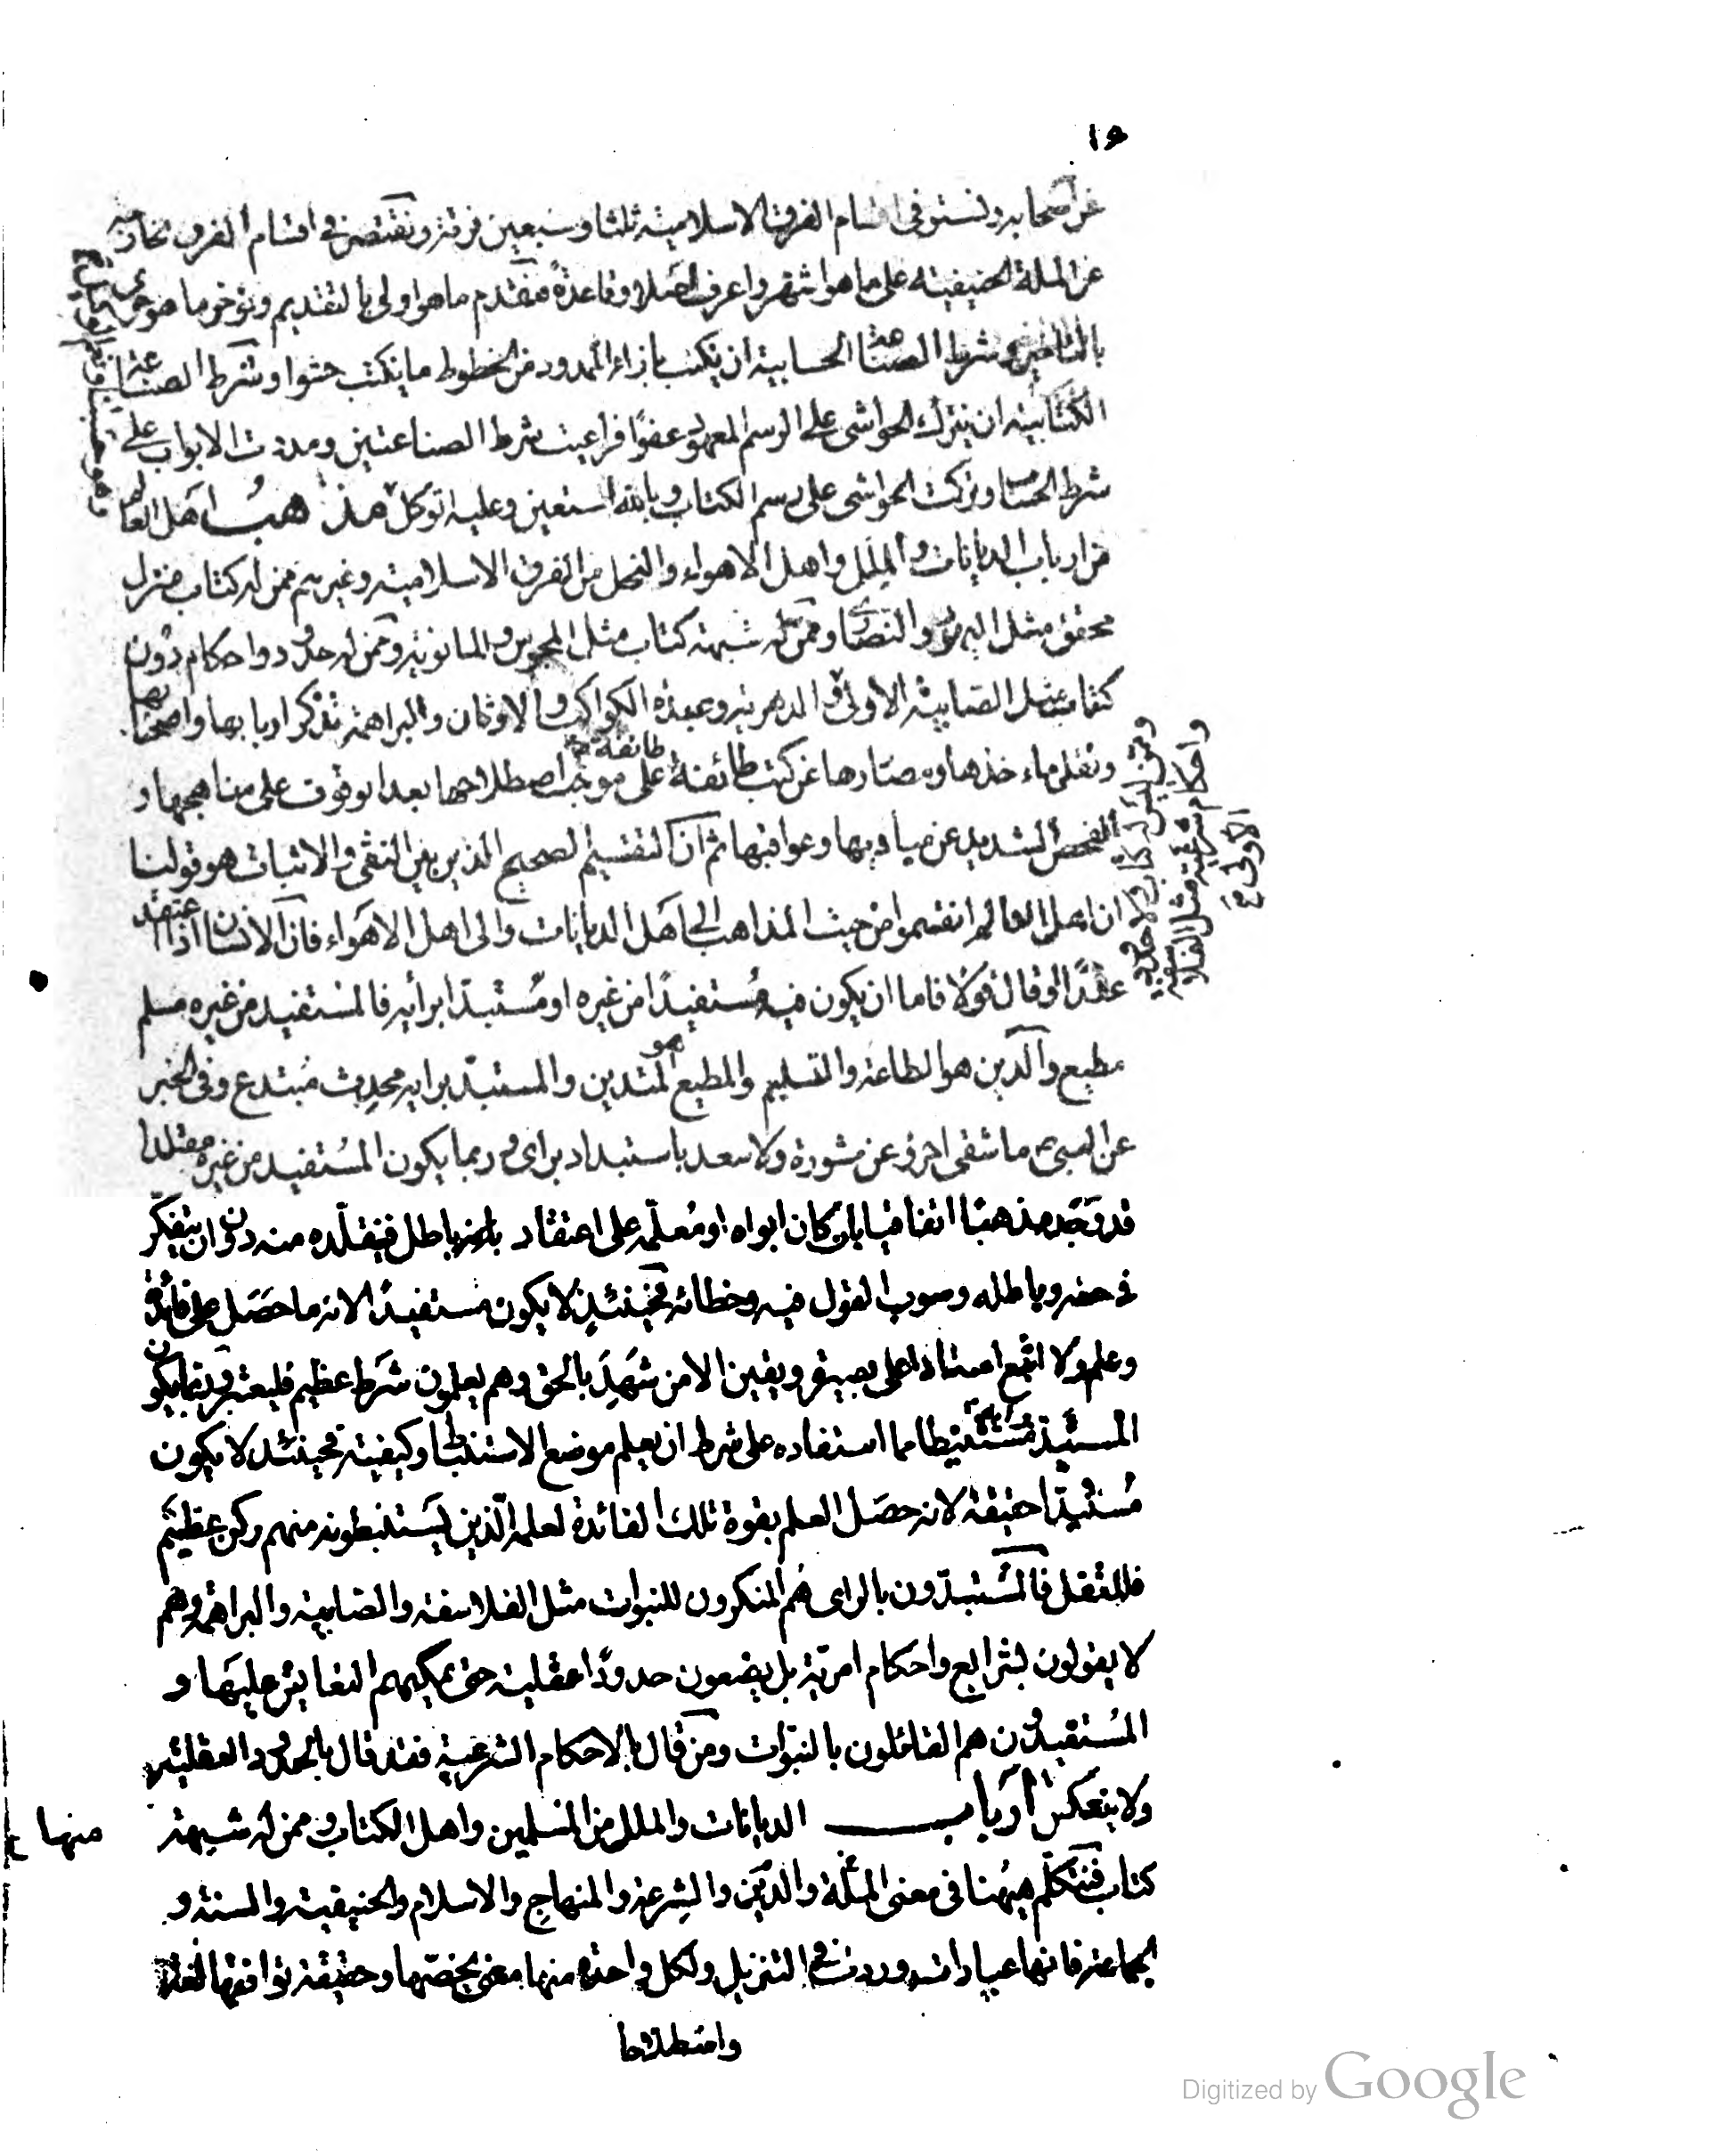 ١٥
عن اصحابه ونستوفى اقسام الفرق الاسلامية ثلثا وسبعين فرقة ونقتصر فى اقسام الفرق الخارجة
عن الملة الحنيفية على ما هو اشهر واعرف اصلا وقاعدة فنقدم ما هو اولى بالتقديم ونؤخر ما هو احرى
بالتاخير وشرط الصناعة الحسابية ان يكتب بازاء المدود من الخطوط ما يكتب حشوا وشرط الصناعة
الكتابية ان يترك الحواشى على الرسم المعهود عفوا فراعيت شرط الصناعتين ومددت الابواب على
شرط الحساب وتركت الحواشى على رسم الكتاب وبالله استعين وعليه اتوكل مذاهب اهل العالم
من ارباب الديانات والملل واهل الاهواء والنحل من الفرق الاسلامية وغيرهم ممن له كتاب منزل
محقق مثل اليهود والنصارى وممن له شبهة كتاب مثل المجوس والمانوية وممن له حدود واحكام دون
كتاب مثل الصابية الاولى والدهرية وعبدة الكواكب والاوثان والبراهمة نذكر اربابها واصحابها
وننقل مآخذها ومصادرها عن كتب طائفة طائفة على موجب اصطلاحها بعد الوقوف على مناهجها و
الفحص الشديد عن مباديها وعواقبها ثم ان التقسيم الصحيح الدابر بين النفى والاثبات هو قولنا
ان اهل العالم انقسموا من حيث المذاهب الى اهل الديانات والى اهل الاهواء فان الانسان اذا اعتقد
عقدا او قال قولا فاما ان يكون فيه مستفيدا من غيره او مستبدا برأيه فالمستفيد من غيره مسلم
مطيع والدين هو الطاعة والتسليم والمطيع هو المتدين والمستبد برايه محدث مبتدع وفى الخبر
عن النبى ص ما شقى امرؤ عن مشورة ولا سعد باستبداد براى وربما يكون المستفيد من غيره مقلدا
قد وجد مذهبا اتفاقيا بان كان ابواه او معلمه على اعتقاد باطل فيتقلده منه دون ان يتفكر
فى حقه وباطله وصوب القول فيه وخطائه فحينئذ لا يكون مستفيدا لانه ما حصل على فائدة
وعلم ولا اتبع استاذا على بصيرة ويقين الا من شهد بالحق وهم يعلمون شرط عظيم فليعتبر وربما يكون
المستبد برايه مستنبطا مما استفاده على شرط ان يعلم موضع الاستنباط وكيفيته فحينئذ لا يكون
مستبدا حقيقة لانه حصل العلم بقوة تلك الفائدة لعلمه الذين يستنبطونه منهم ركن عظيم
فلا تغفل فالمستبدون بالراى هم المنكرون للنبوات مثل الفلاسفة والصابية والبراهمة وهم
لا يقولون بشرايع واحكام امرية بل يضعون حدودا عقلية حتى يمكنهم التعايش عليها و
المستفيدون هم القائلون بالنبوات ومن قال بالاحكام الشرعية فقد قال بالحدود العقلية
ولا ينعكس ارباب الديانات والملل من المسلمين واهل الكتاب وممن له شبهة منها
كتاب فنتكلم ههنا فى معنى الملة والدين والشرعة والمنهاج والاسلام والحنيفية والسنة و
الجماعة فانها عبارات وردت فى التنزيل ولكل واحدة منها معنى يخصها وحقيقة توافقها لغة
واصطلاحا
وممن ليس له كتاب ولا حدود
واحكام شرعية مثل الفلاسفة
الاولى